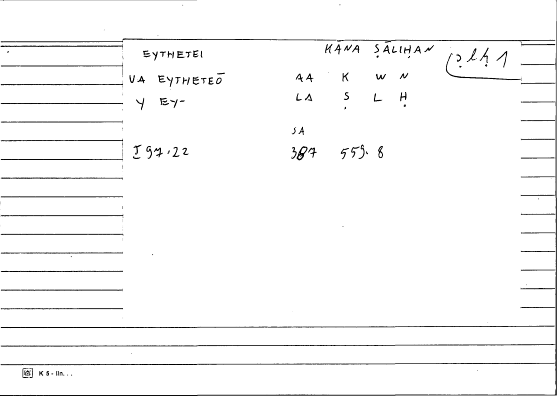 EYTHETEI KĀNA ṢĀLIḤAN ṣlḥ 1
VA EYTHETEŌ AA K W N
Y EY- LA Ṣ L Ḥ
SA
I 97.22 387 559.8
K 5 - lin. . .